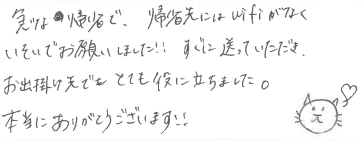 急な帰省で、帰省先にはwifiがなく
いそいでお願いしました!! すぐに送っていただき
お出掛け先でもとても役に立ちました。
本当にありがとうございます!!